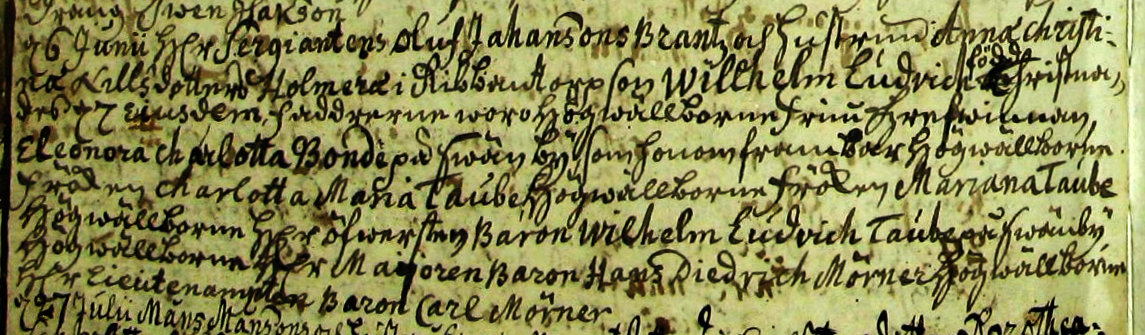 dräng Swen Håkson
26 Junii Hhr Sergiantens Oluf Jahansons Brantz och Hustruu Anna Christi-
na Killsdotters Holmera i Ribbantorp son Willhelm Ludvich född Christna-
des 27 Eiusdem, Faddrerne woro Högwällborne Fruu Grefwinnan
Eleonora Charlotta Bonde på Swänby som honom frambar Högwällborne
Fröken Charlotta Maria Taube Högwällborne Fröken Mariana Taube
Högwällborne Hhr Öfwersten Baron Wilhelm Ludvich Taube på Swänby
Högwällborne Hhr Majoren Baron Hans Diedrich Mörner Högwällborne
Hhr Lieutenampten Baron Carl Mörner
27 Julii Måns Månsons